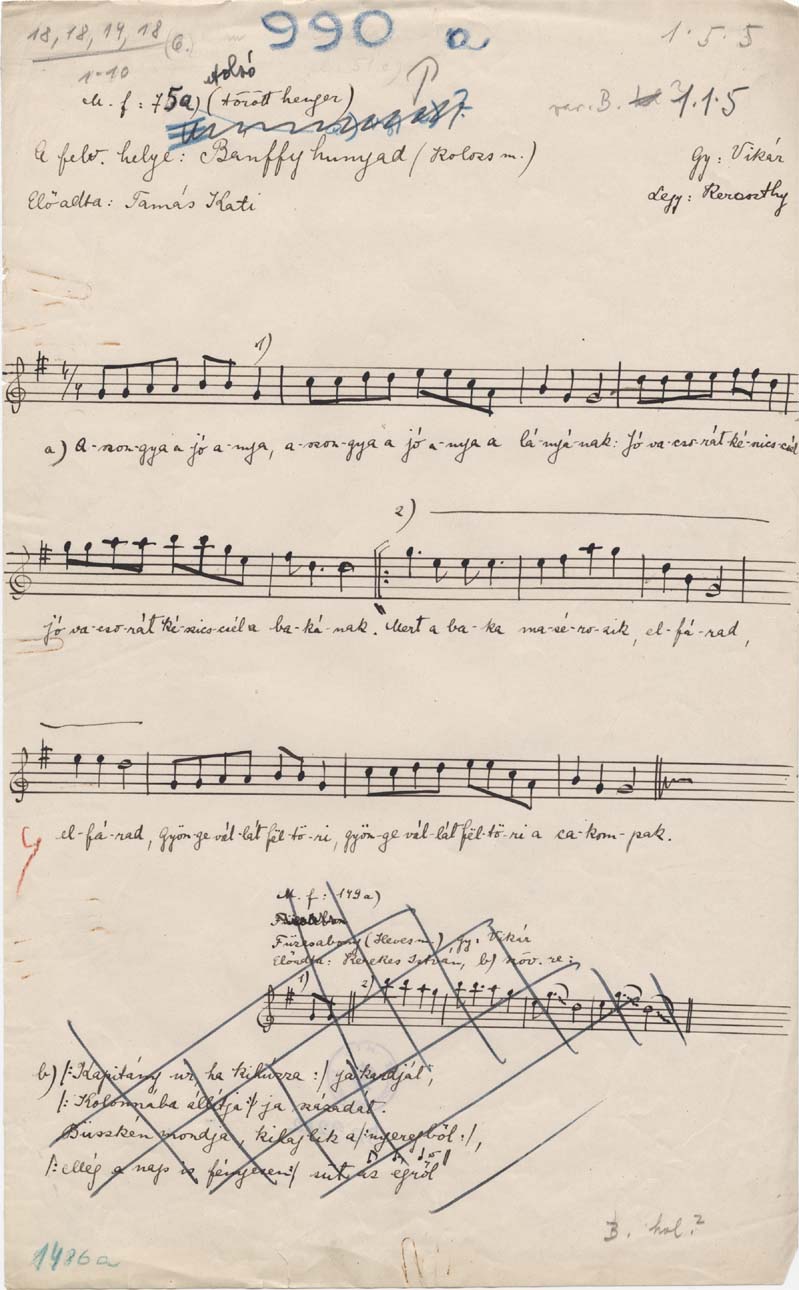 18, 18, 19, 18 (6.
990 a
1. 5. 5
1-10
Alsó
M. f: 75a) (törött henger)
var. B. 1.1.5
A felv. helye: Bánffyhunyad (Kolozs m.)
Gy: Vikár
Előadta: Tamás Kati
Legy: Kereszthy
1)
a) A-szon-gya a jó a-nya, a-szon-gya a jó a-nya a lá-nyá-nak: Jó va-cso-rát ké-szics-csél
2)
jó va-cso-rát ké-szics-csél a ba-ká-nak. Mert a ba-ka ma-sé-ro-zik, el-fá-rad,
el-fá-rad, gyön-ge vál-lát föl-tö-ri, gyön-ge vál-lát föl-tö-ri a ca-kom-pak.
M. f: 149a)
Füzesabony (Heves m.), gy: Vikár
Előadta: Kerekes István, b) szöv. re:
1) 2)
b) /: Kapitány ur, ha kihúzza :/ ja kardját,
/: Kolonnába állítja :/ ja századát.
Büszkén mondja, kihajlik a /: nyeregből :/,
/: Még a nap is fényesen :/ süt az égről
B. hol?
1486a